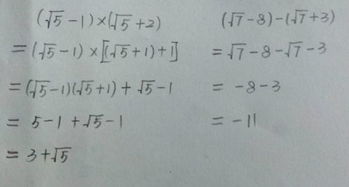 (√5-1)×(√5+2)
=(√5-1)×[(√5+1)+1]
=(√5-1)(√5+1)+√5-1
= 5-1+√5-1
= 3+√5
(√7-8)-(√7+3)
=√7-8-√7-3
= -8-3
= -11